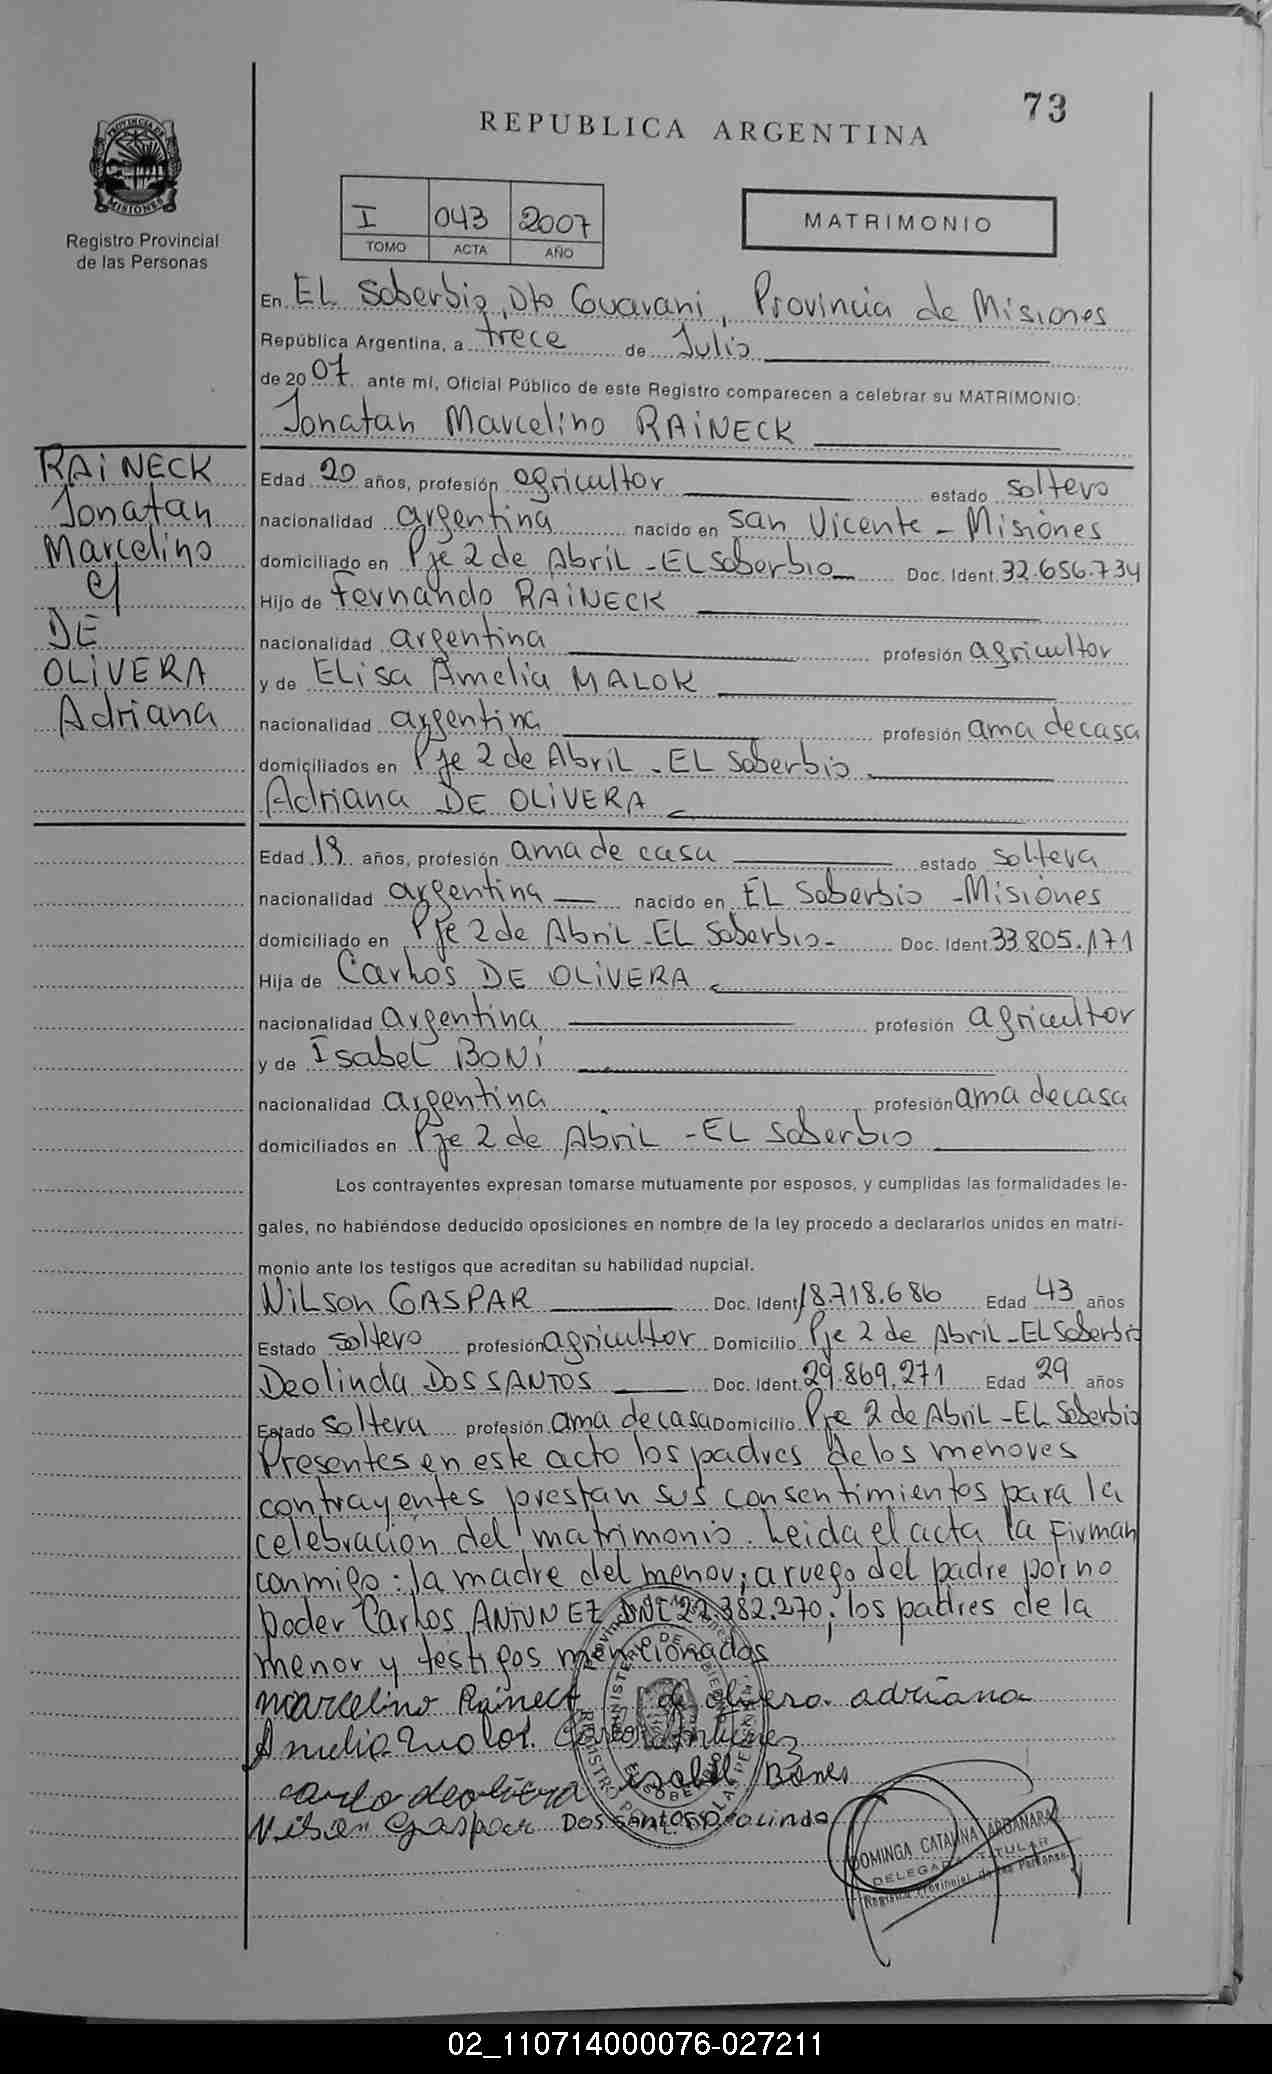 73
REPUBLICA ARGENTINA
PROVINCIA DE
MISIONES
Registro Provincial
de las Personas
I 043 2007
TOMO ACTA AÑO
MATRIMONIO
En EL Soberbio, Dto Guarani, Provincia de Misiones
República Argentina, a trece de Julio
de 2007 ante mí, Oficial Público de este Registro comparecen a celebrar su MATRIMONIO:
Jonatan Marcelino RAINECK
RAINECK
Jonatan
Marcelino
c/
DE
OLIVERA
Adriana
Edad 20 años, profesión agricultor estado soltero
nacionalidad argentina nacido en San Vicente - Misiones
domiciliado en Pje 2 de Abril - EL Soberbio Doc. Ident. 32.656.734
Hijo de Fernando RAINECK
nacionalidad argentina profesión agricultor
y de Elisa Amelia MALOK
nacionalidad argentina profesión ama de casa
domiciliados en Pje 2 de Abril - EL Soberbio
Adriana DE OLIVERA
Edad 19 años, profesión ama de casa estado soltera
nacionalidad argentina nacido en EL Soberbio - Misiones
domiciliado en Pje 2 de Abril - EL Soberbio - Doc. Ident. 33.805.171
Hija de Carlos DE OLIVERA
nacionalidad argentina profesión agricultor
y de Isabel BONI
nacionalidad argentina profesión ama de casa
domiciliados en Pje 2 de Abril - EL Soberbio
Los contrayentes expresan tomarse mutuamente por esposos, y cumplidas las formalidades le-
gales, no habiéndose deducido oposiciones en nombre de la ley procedo a declararlos unidos en matri-
monio ante los testigos que acreditan su habilidad nupcial.
Wilson GASPAR Doc. Ident. 18.718.686 Edad 43 años
Estado soltero profesión agricultor Domicilio Pje 2 de Abril - EL Soberbio
Deolinda DOS SANTOS Doc. Ident. 29.869.271 Edad 29 años
Estado soltera profesión ama de casa Domicilio Pje 2 de Abril - EL Soberbio
Presentes en este acto los padres de los menores
contrayentes prestan sus consentimientos para la
celebración del matrimonio. Leida el acta la firman
conmigo: la madre del menor; a ruego del padre por no
poder Carlos ANTUNEZ DNI 22.382.270; los padres de la
menor y testigos mencionados
Marcelino Raineck de olivera adriana
Amelia Malok Carlos Antunez
carlo deolivera isabel Bones
Wilson Gaspar Dos santos Deolinda
DOMINGA CATALINA ARGAÑARAZ
DELEGADA TITULAR
Registro Provincial de las Personas
02_110714000076-027211